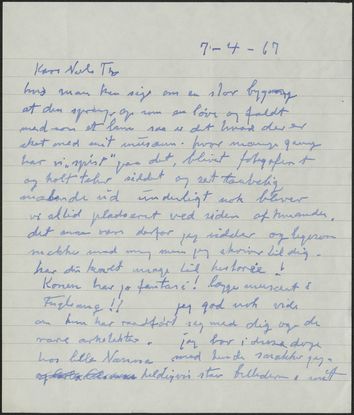 7-4-67
Kære Niels Th
hvis man kan sige om en stor bygning
at den sprang op som en løve og faldt
ned som et lam saa er det hvad der er
sket med mit museum. hvor mange gang
har vi "spist" paa det, blevet fotograferet
og holt taler siddet og set taabelig
ud underligt nok blev
vi altid placeret ved siden af hinanden.
det maa være derfor jeg sidder og ligesom
snakker med mig når jeg skriver til dig.
har du kendt mage til historie!
Konen har jo fantasi! lægge museet i
Fuglsang!! jeg gad nok vide
om hun har raadført sig med dig og de
rare arkitekter. jeg bor i disse dage
hos lille Nanna med hende snakker jeg
heldigvis star billedern i mit